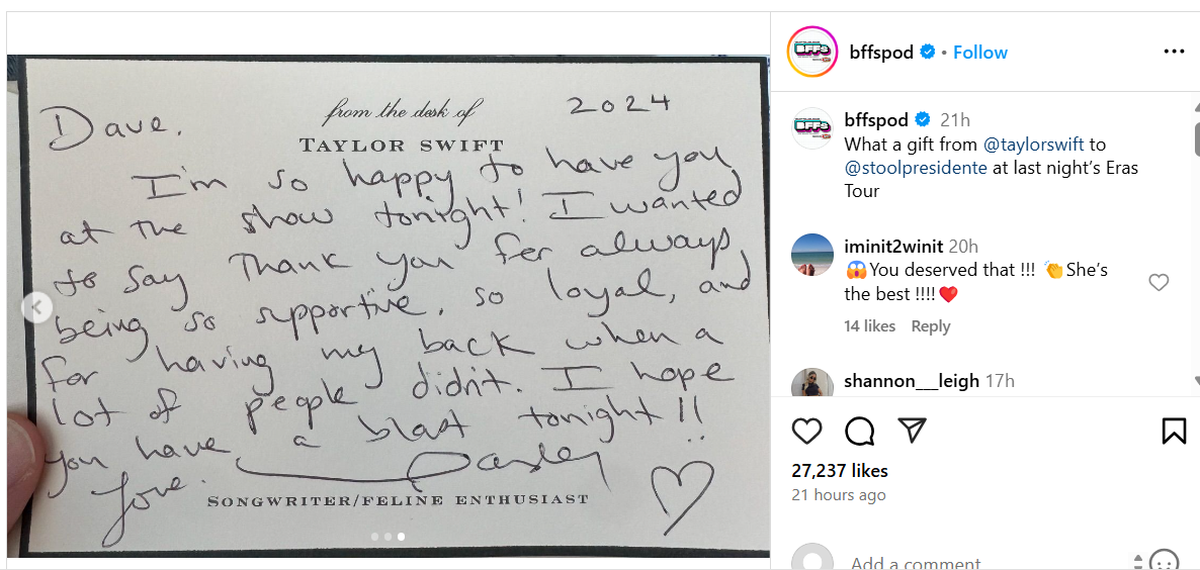 Dave,
from the desk of
TAYLOR SWIFT
2024
I'm so happy to have you
at the show tonight! I wanted
to say Thank you for always
being so supportive, so loyal, and
for having my back when a
lot of people didn't. I hope
you have a blast tonight!!
Love.
SONGWRITER/FELINE ENTHUSIAST
bffspod • Follow
bffspod 21h
What a gift from @taylorswift to
@stoolpresidente at last night's Eras
Tour
iminit2winit 20h
😱You deserved that !!! 👏She's
the best !!!!❤️
14 likes Reply
shannon___leigh 17h
27,237 likes
21 hours ago
Add a comment